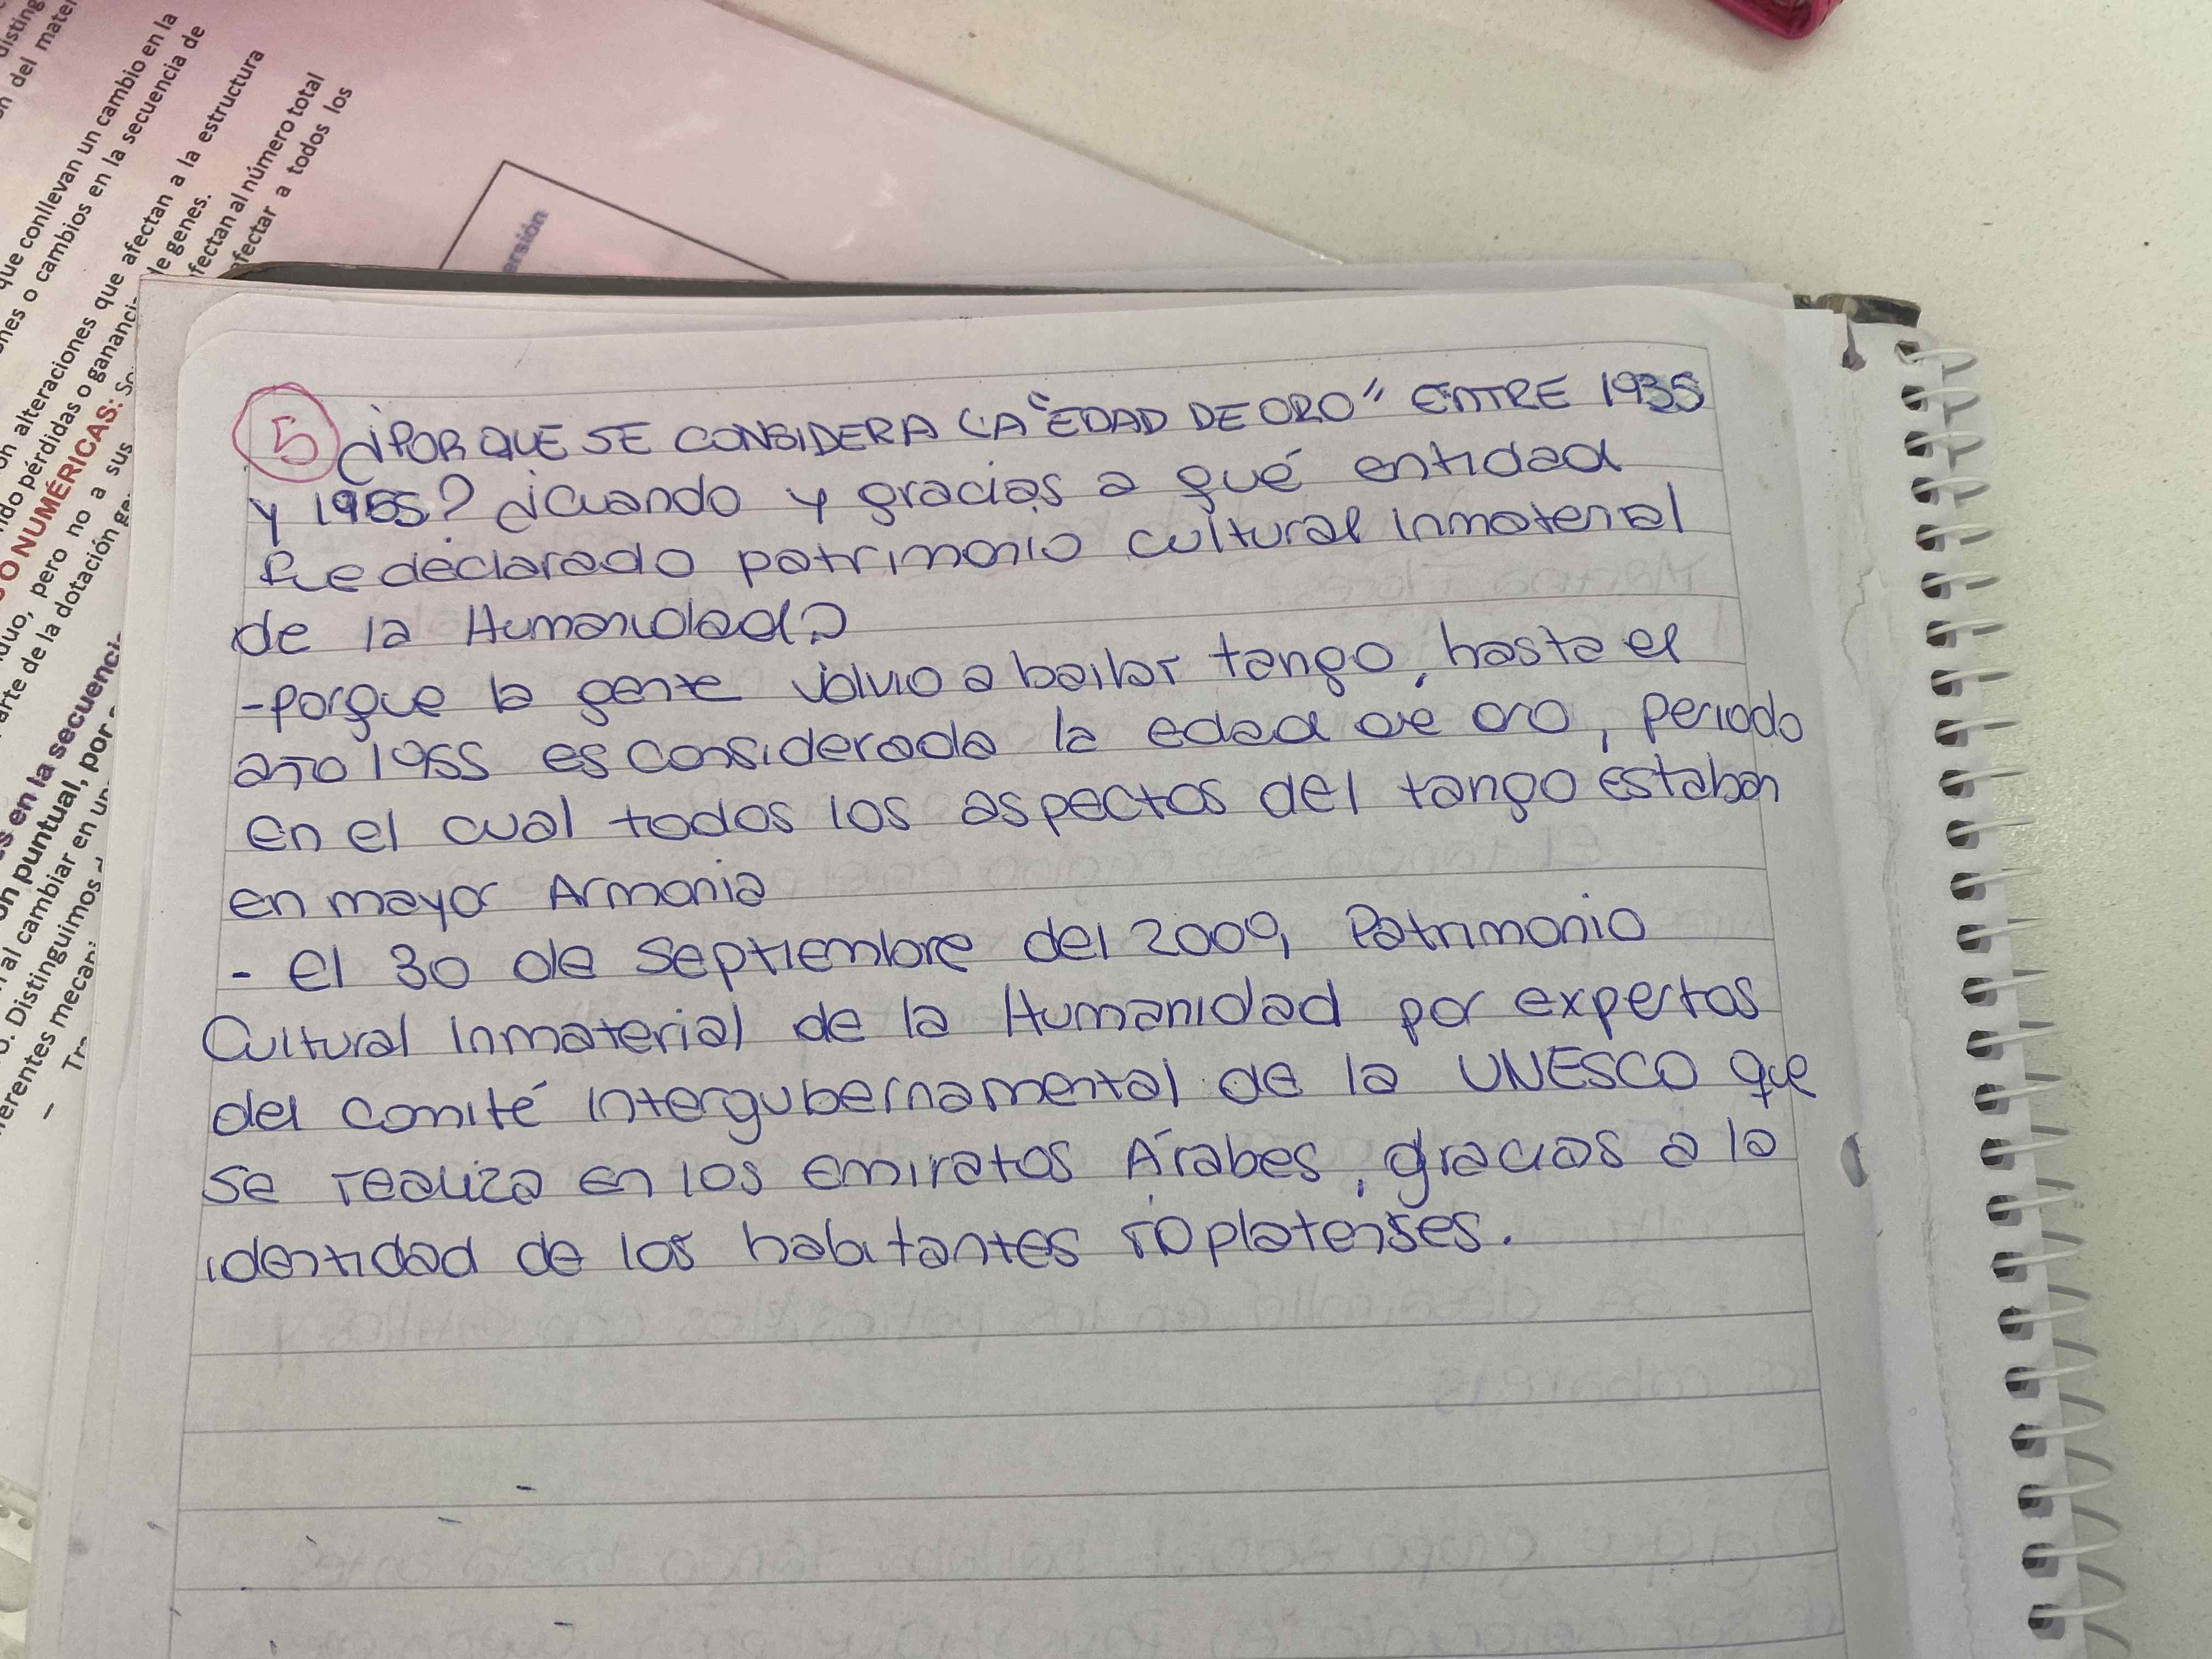 disting
n del mater
que conllevan un cambio en la
nes o cambios en la secuencia de
on alteraciones que afectan a la estructura
ido pérdidas o gananci
le genes.
O NUMÉRICAS: So
fectan al número total
duo, pero no a sus
afectar a todos los
arte de la dotación ge
s en la secuenci
ón puntual, por
al cambiar en un
o. Distinguimos
erentes mecani
- Tr
ersión
5 ¿POR QUE SE CONSIDERA LA "EDAD DE ORO" ENTRE 1935
y 1955? ¿Cuando y gracias a qué entidad
fue declarado patrimonio cultural inmaterial
de la Humanidad?
-porque la gente volvio a bailar tango, hasta el
año 1955 es considerada la edad de oro, periodo
en el cual todos los aspectos del tango estaban
en mayor Armonia
- el 30 de septiembre del 2009, Patrimonio
Cultural inmaterial de la Humanidad por expertos
del comité intergubernamental de la UNESCO que
se realiza en los emiratos Árabes, gracias a la
identidad de los habitantes rioplatenses.